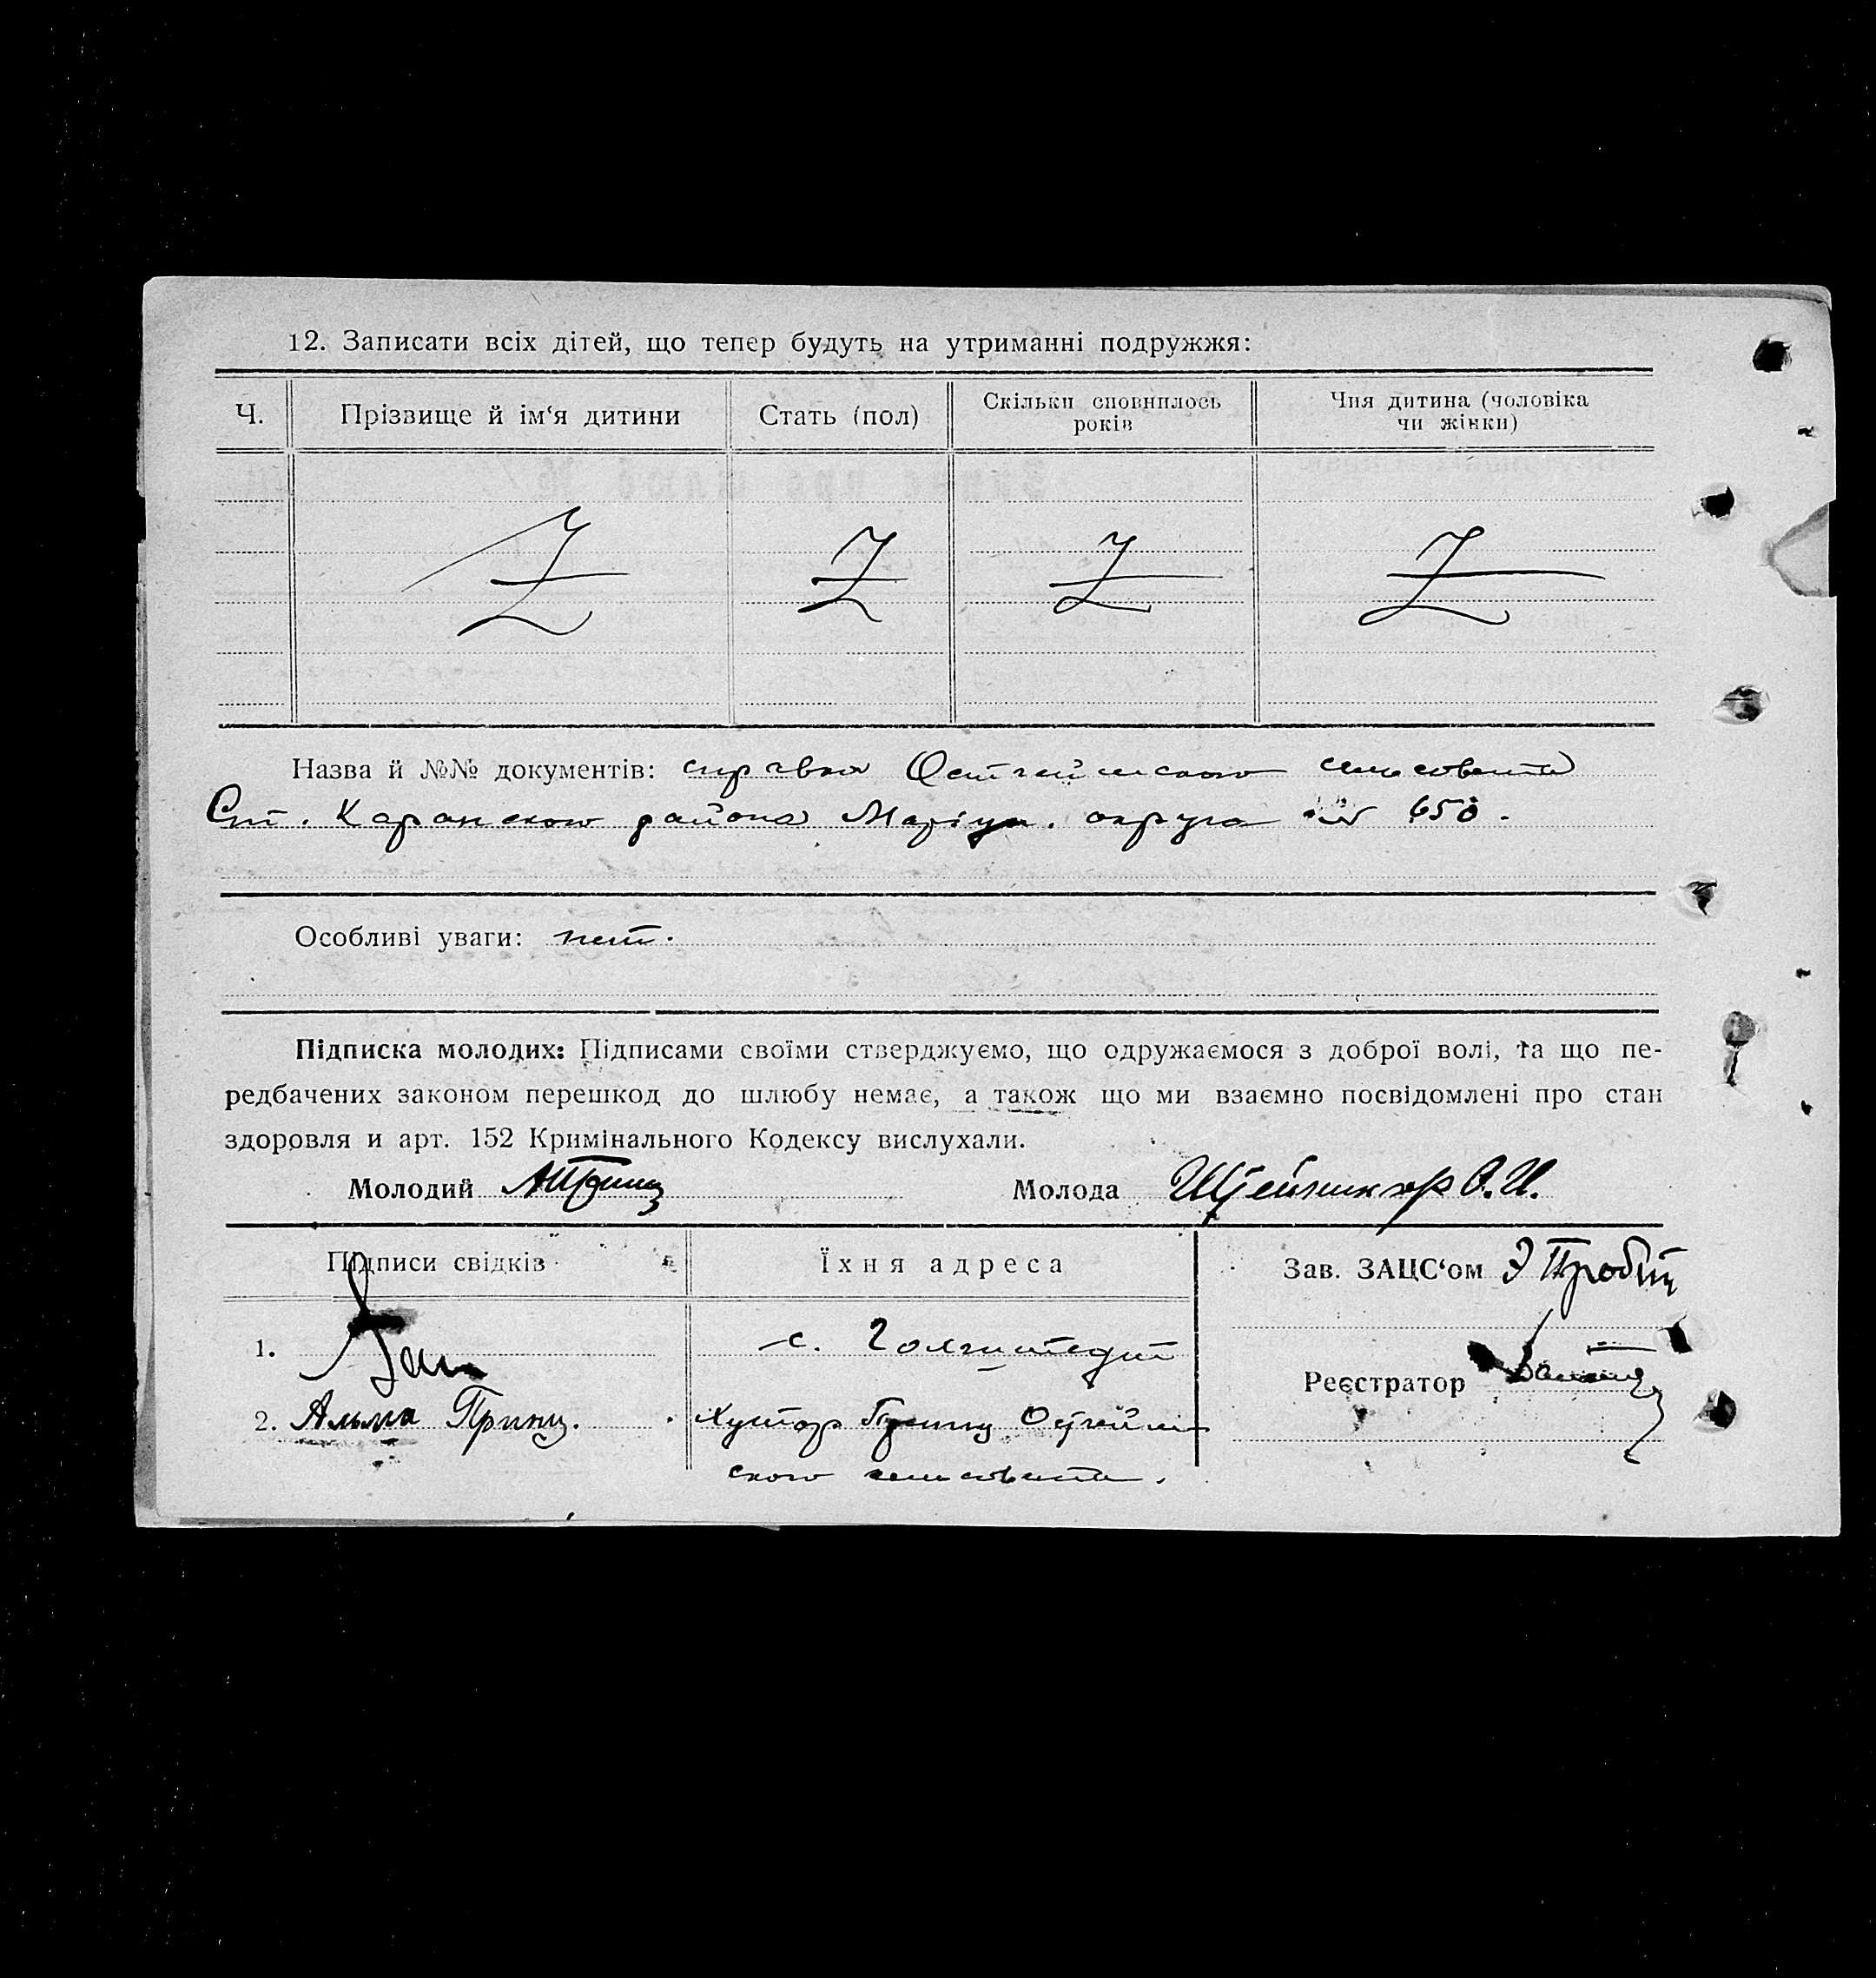 12. Записати всіх дітей, що тепер будуть на утриманні подружжя:
Ч. Прізвище й ім‘я дитини Стать (пол) Скільки сповнилось років Чия дитина (чоловіка чи жінки)
Z Z Z Z
Назва й №№ документів: справка Остгеймского сельсовета
Ст. Каранского района Маріуп. округа № 650.
Особливі уваги: нет.
Підписка молодих: Підписами своїми стверджуємо, що одружаємося з доброї волі, та що пе-
редбачених законом перешкод до шлюбу немає, а також що ми взаємно посвідомлені про стан
здоровля и арт. 152 Кримінального Кодексу вислухали.
Молодий АПринц Молода Штейникер О.И.
Підписи свідків Їхня адреса Зав. ЗАЦС‘ом
1. с. Голгштедт
Реєстратор
2. Альма Принц. Хутор Принц Остгейм-
ского сельсовета.